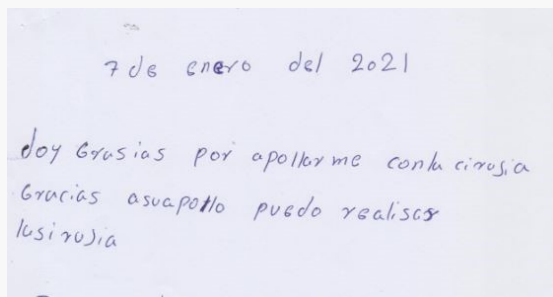 7 de enero del 2021
doy Grasias por apollarme conla cirusia
Gracias asuapollo puedo realisar
lasirujia